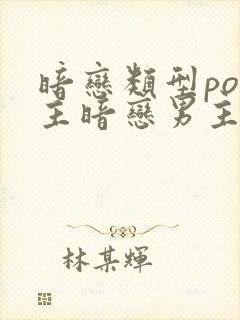 暗戀類型po
主暗戀男主
林某輝